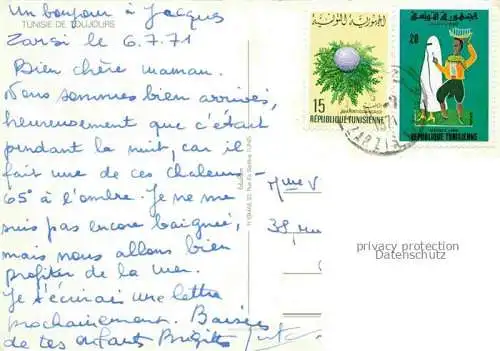 un bonjour à Jacques
TUNISIE DE TOUJOURS
Zarsi le 6.7.71
Bien chère maman.
Nous sommes bien arrivés,
heureusement que c'était
pendant la nuit, car il
fait une de ces chaleurs –
65° à l'ombre. Je ne me
suis pas encore baignée,
mais nous allons bien
profiter de la mer.
Je t'écrirais une lettre
prochainement. Baisers
de tes enfants Brigitte
الجمهورية التونسية
15
REPUBLIQUE TUNISIENNE
الجمهورية التونسية
20
REPUBLIQUE TUNISIENNE
ZARZIS
Mme V
38, rue
privacy protection
Datenschutz